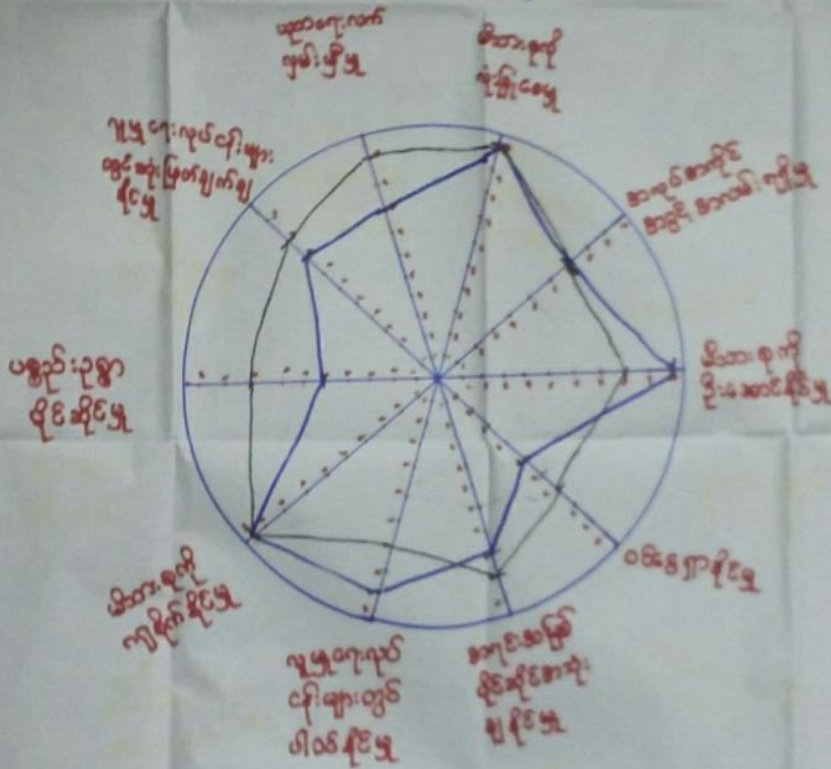 ပညာရေးလက်
လှမ်းမှီမှု
မိသားစုကို
လုံခြုံစေမှု
အလုပ်အကိုင်
အခွင့်အလမ်းရရှိမှု
မိသားစုကို
ဦးဆောင်နိုင်မှု
ဝင်ငွေရှာနိုင်မှု
အရင်းအမြစ်
ပိုင်ဆိုင်အသုံး
ချနိုင်မှု
လူမှုရေးလုပ်
ငန်းများတွင်
ပါဝင်နိုင်မှု
မိသားစုကို
ပစ္စည်းဥစ္စာ
ပိုင်ဆိုင်မှု
လူမှုရေးလုပ်ငန်းများ
တွင်ဆုံးဖြတ်ချက်ချ
နိုင်မှု